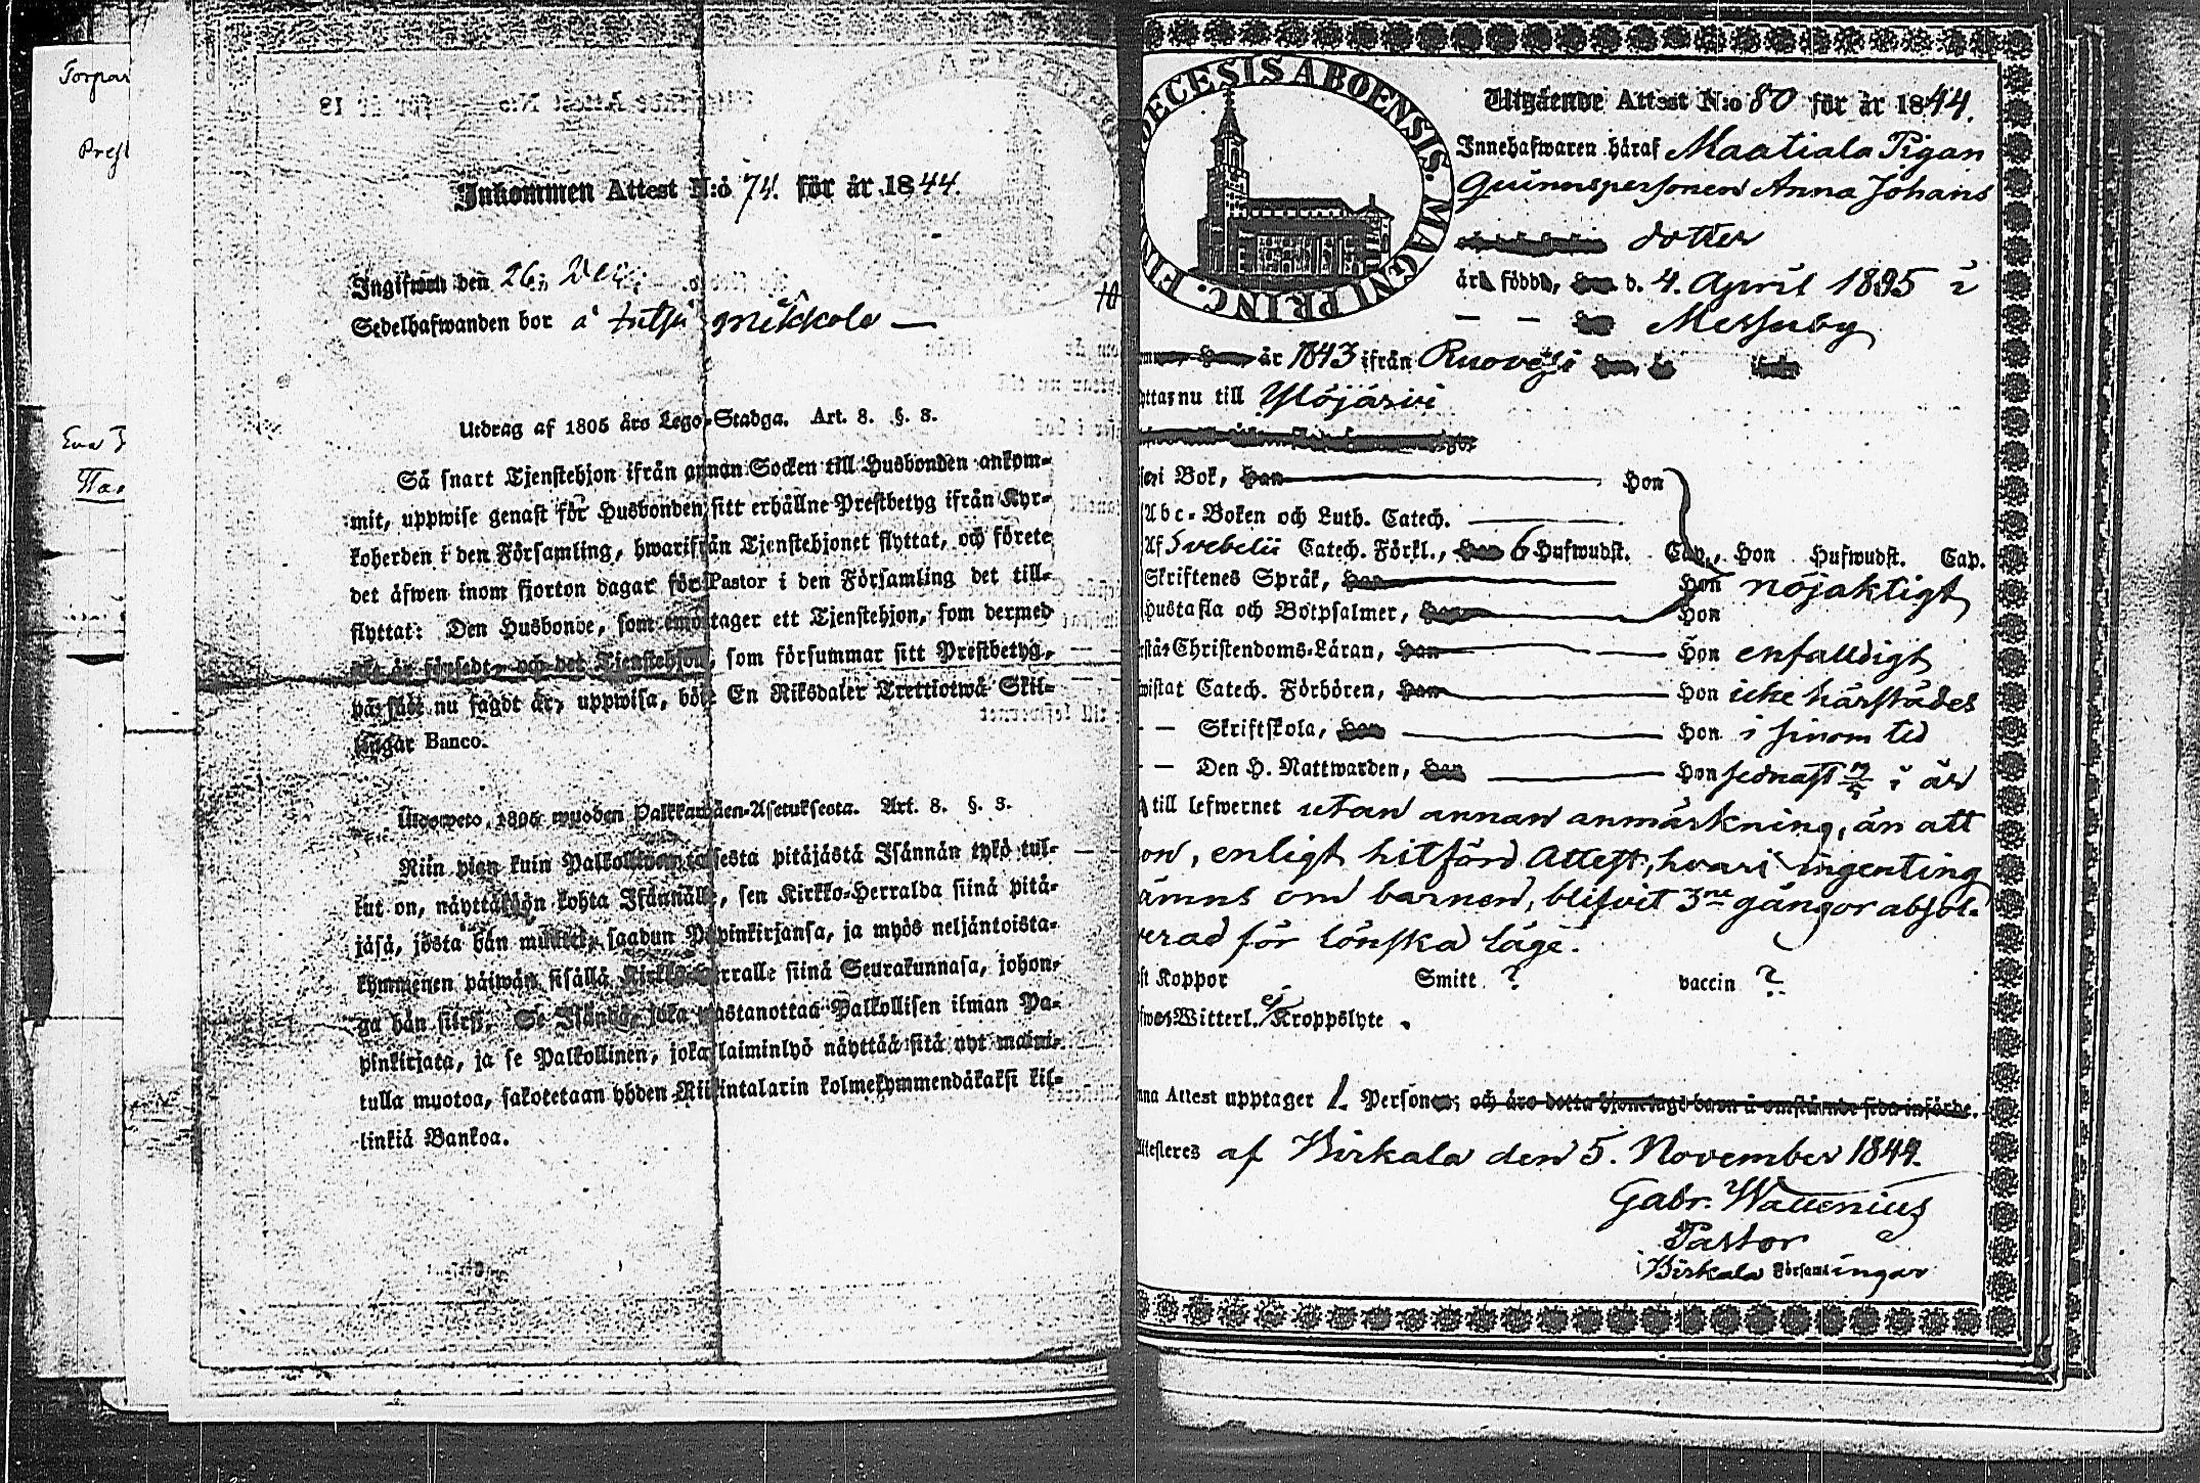 Torpar
Prest
Eva J
Inkommen Attest N:o 74. för år 1844.
Ingifwen den 26
Sedelhafwanden bor å Mikkola —
Utdrag af 1805 års Lego-Stadga. Art. 8. §. 8.
Så snart Tjenstehjon ifrån annan Socken till Husbonden ankom-
mit, uppwise genast för Husbonden sitt erhållne Prestbetyg ifrån Kyr-
koherden i den Församling, hwarifrån Tjenstehjonet flyttat, och förete
det äfwen inom fjorton dagar för Pastor i den Församling det till-
flyttat: Den Husbonde, som emottager ett Tjenstehjon, som dermed
och det Tjenstehjon, som försummar sitt Prestbetyg,
på sätt nu sagdt är, uppwisa, böte En Riksdaler Trettiotwå Skil-
lingar Banco.
1805 wuoden Palkkawäen-Asetuksesta. Art. 8. §. 8.
Niin pian kuin pitäjästä Isännän tykö tul-
lut on, näyttäköön kohta Isännälle, sen Kirkko-Herralda siinä pitä-
jäsä, josta hän muutti, saadun Papinkirjansa, ja myös neljäntoista-
kymmenen päiwän sisällä Kirkko-Herralle siinä Seurakunnasa, johon-
ga hän siirsi. Se Isändä, joka wastanottaa Palkollisen ilman Pa-
pinkirjata, ja se Palkollinen, joka laiminlyö näyttää sitä nyt maini-
tulla muotoa, sakotetaan yhden Riikintalarin kolmekymmendäkaksi kil-
linkiä Bankoa.
DIECESIS ABOENSIS. MAGNI PRINC. FIN
Utgående Attest N:o 80 för år 1844.
Innehafwaren häraf Maatiala Pigan
Quinnspersonen Anna Johans
dotter
är född, d. 4. April 1895 i
— — Messuby
år 1843 ifrån Ruovesi
yttar nu till Ylöjärvi
i Bok, Han Hon
Abc-Boken och Luth. Catech.
Af Svebelii Catech. Förkl., Han 6 Hufwudst. Cap., Hon Hufwudst. Cap.
Skriftenes Språk, Han Hon nöjaktigt
Hustafla och Botpsalmer, Han Hon
rstår Christendoms-Läran, Han — Hon enfalldigt
wistat Catech. Förhören, Han Hon icke härstädes
— — Skriftskola, Han Hon i sinom tid
— — Den H. Nattwarden, Han Hon sednast i år
till lefwernet utan annan anmärkning, än att
on, enligt hitförd Attest, hvari ingenting
ämns om barnen, blifvit 3ne gångor absol-
verad för lönska läge.
st Koppor Smitt ? vaccin ?
Witterl. ej Kroppslyte .
nna Attest upptager 1. Person; och äro detta hjonelags barn å omstående sida införde.
ttesteres af Birkala den 5. November 1844.
Gabr. Wallenius
Pastor
i Birkala Församlingar